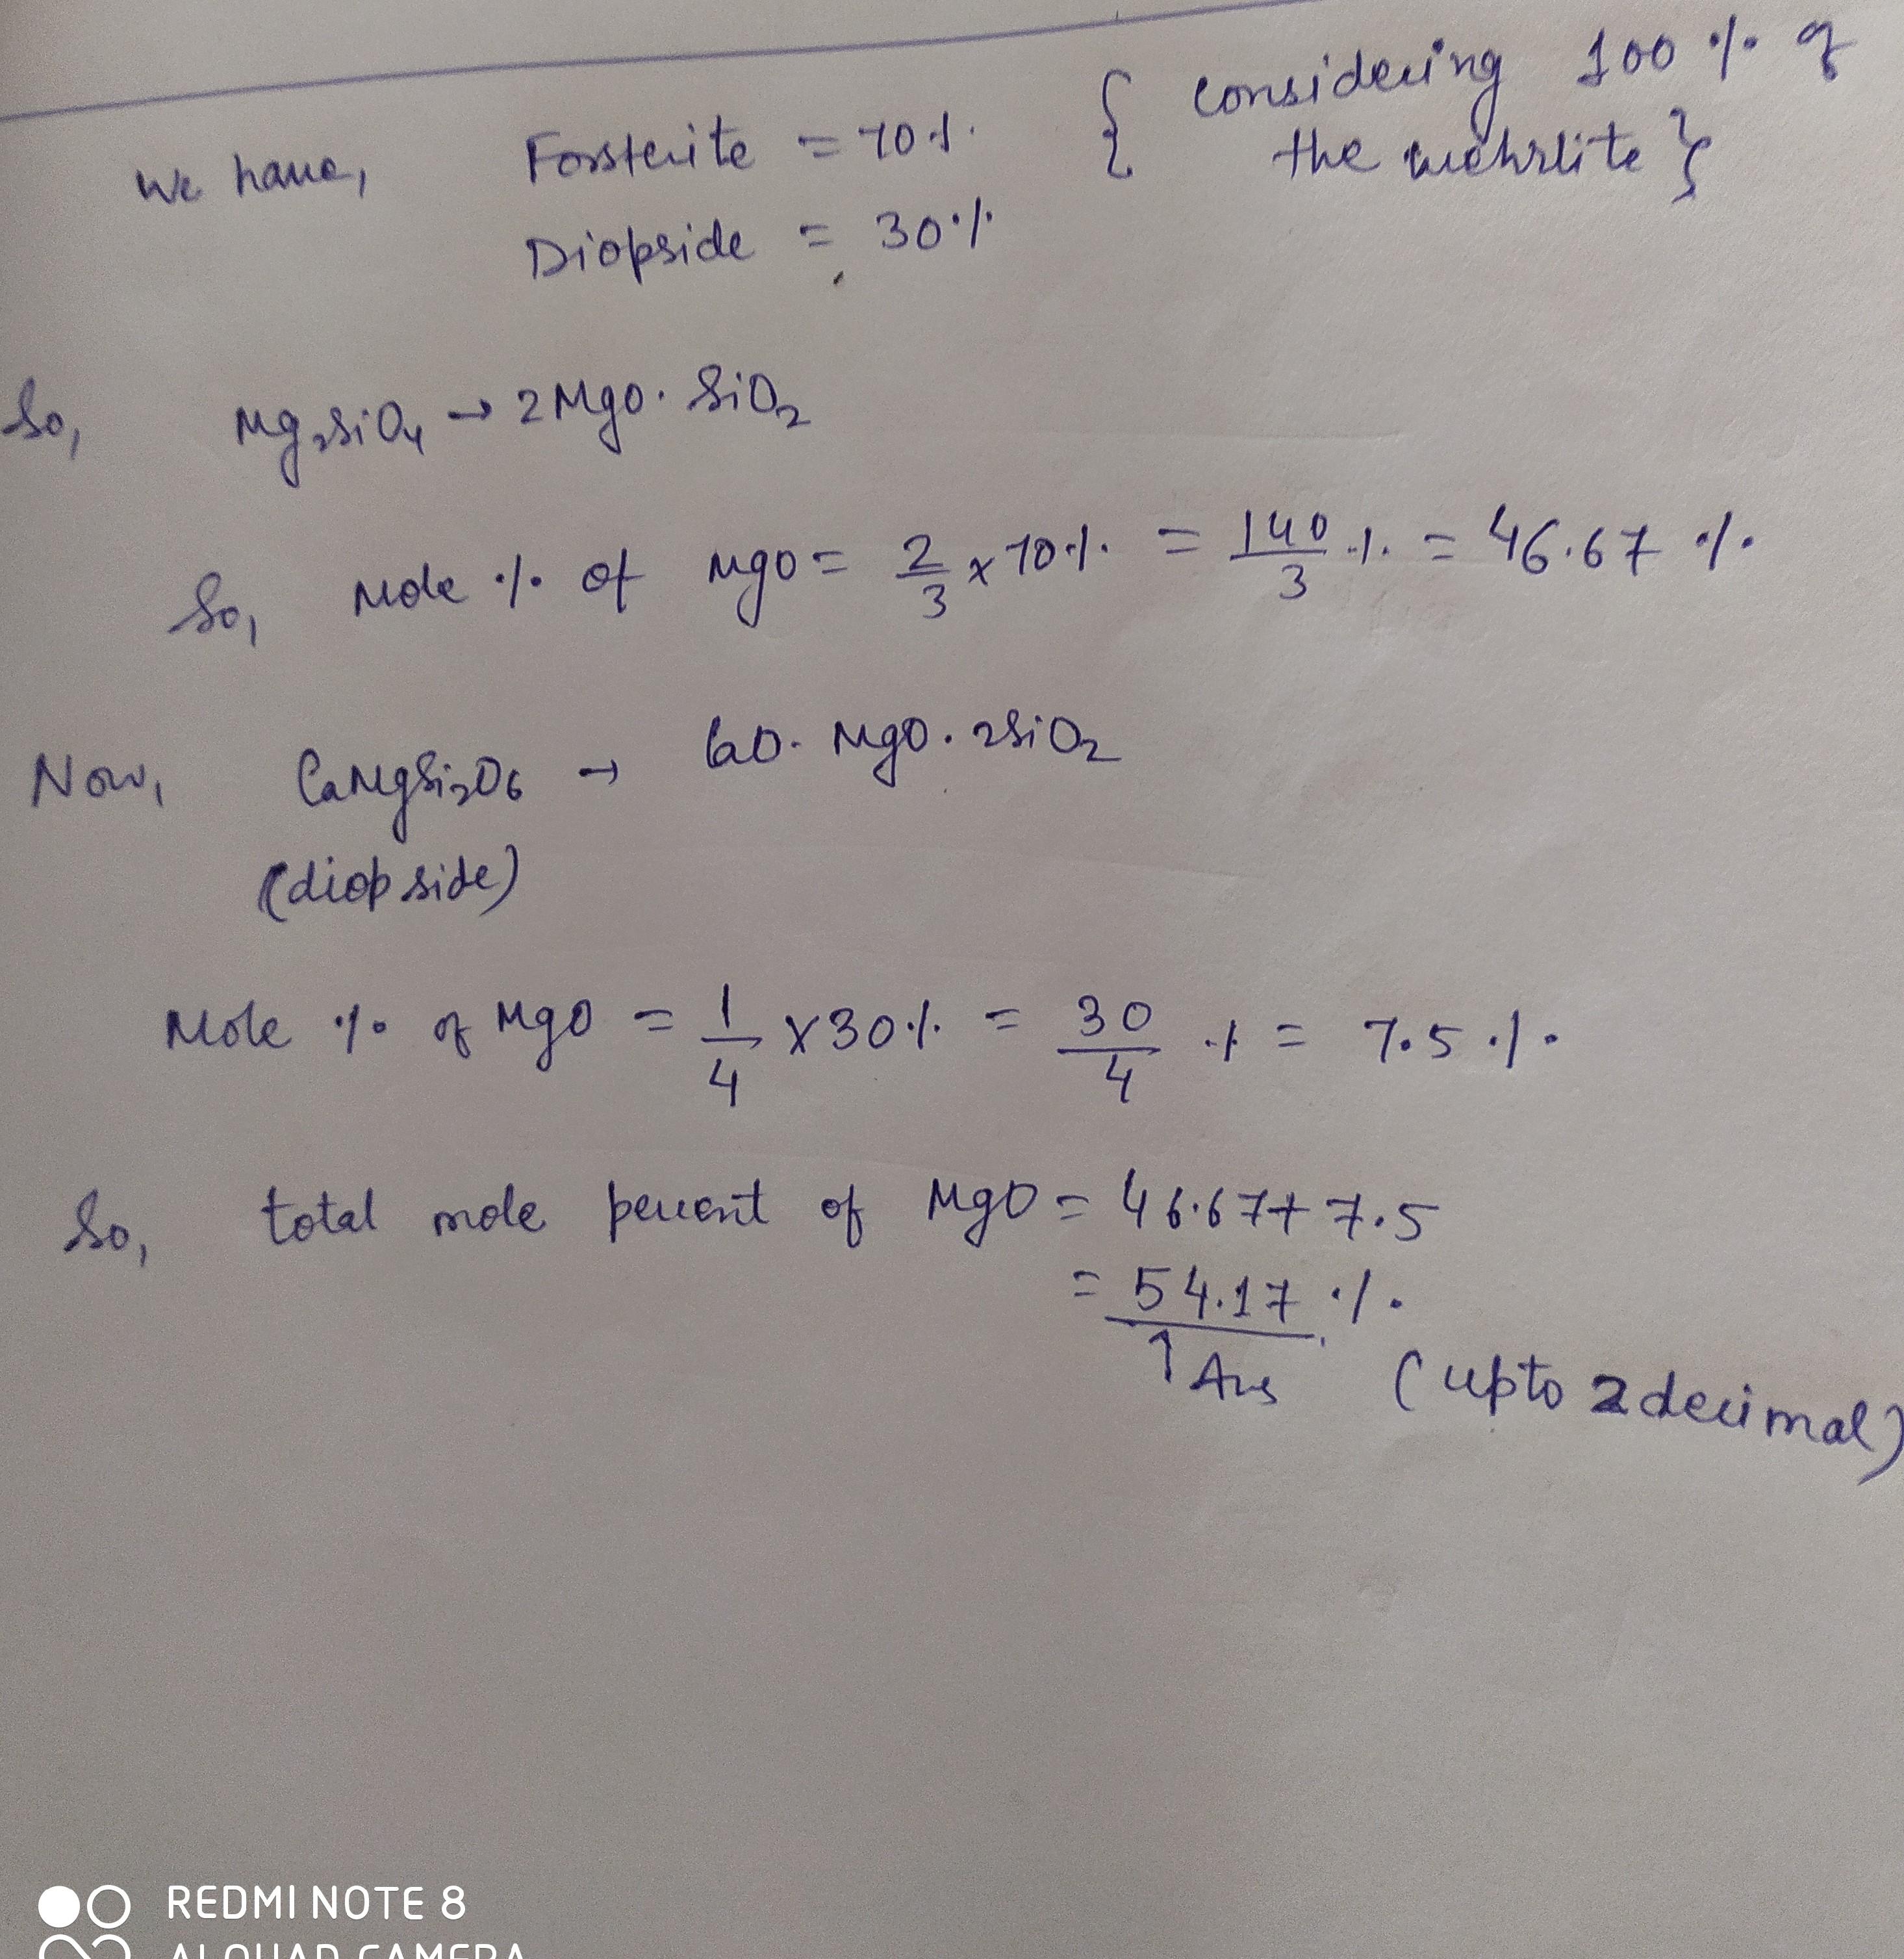 We have, Forsterite = 70% { considering 100 % of
the wehrlite }
Diopside = 30%
So, Mg₂SiO₄ → 2MgO. SiO₂
So, Mole % of MgO = 2/3 x 70% = 140/3 % = 46.67 %
Now, CaMgSi₂O₆ → CaO. MgO. 2SiO₂
(diopside)
Mole % of MgO = 1/4 x 30% = 30/4 % = 7.5 %
So, total mole percent of MgO = 46.67 + 7.5
= 54.17 %
↑ Ans (upto 2 decimal)
REDMI NOTE 8
AI QUAD CAMERA